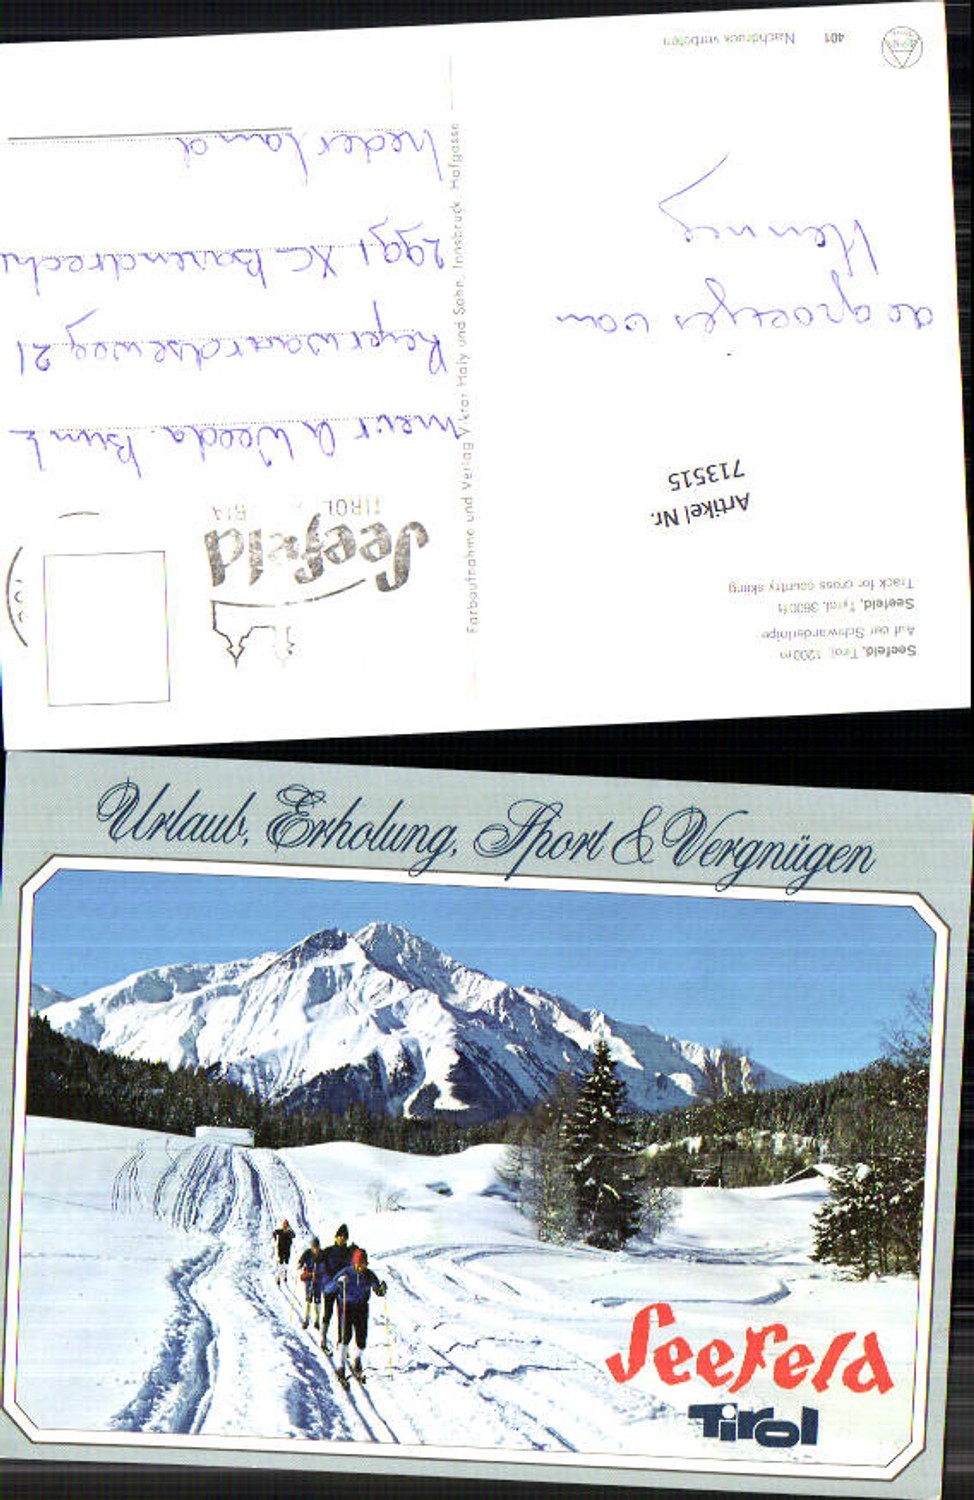 Seefeld, Tirol, 1200 m
Auf der Schwanderloipe
Seefeld, Tyrol, 3600 ft
Track for cross country skiing
Artikel Nr.
713515
de groetjes van
Henny
401 Nachdruck verboten
Farbaufnahme und Verlag Viktor Haly und Sohn, Innsbruck, Hofgasse
Seefeld
TIROL
Mevr A Weeda
Reyerwaardseweg 21
2991 XC Barendrecht
Nederland
Urlaub, Erholung, Sport & Vergnügen
Seefeld
Tirol